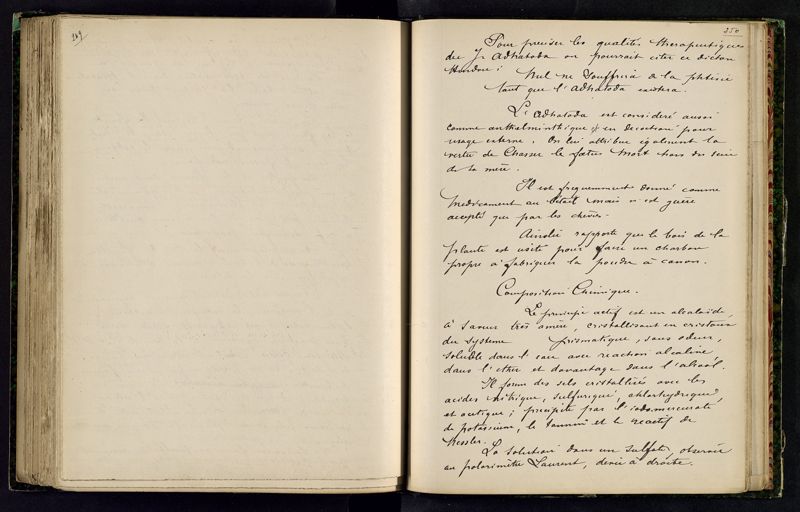 249
250
Pour preciser les qualités thérapeutiques
du J. Adhatoda on pourrait citer ce dicton
Hindou : Nul ne souffrira de la phtisie
tant que l'Adhatoda existera.
L'Adhatoda est consideré aussi
comme anthelminthique et en decoction pour
usage externe. On lui attribue également la
vertu de Chasser le fœtus mort hors du sein
de la mère.
Il est frequemment donné comme
medicament au bétail mais n'est guère
accepté que par les chèvres.
Ainslie rapporte que le bois de la
plante est usité pour faire un charbon
propre à fabriquer la poudre à canon.
Composition Chimique.
Le principe actif est un alcaloïde,
à saveur très amère, cristallisant en cristaux
du systeme prismatique, sans odeur,
soluble dans l'eau avec reaction alcaline,
dans l'ether et davantage dans l'alcool.
Il forme des sels cristallisés avec les
acides nitrique, sulfurique, chlorhydrique,
et acétique ; precipité par l'iodomercurate
de potassium, le tannin et le reactif de
Nessler.
La solution dans un sulfate, observée
au polarimètre Laurent, devie à droite.